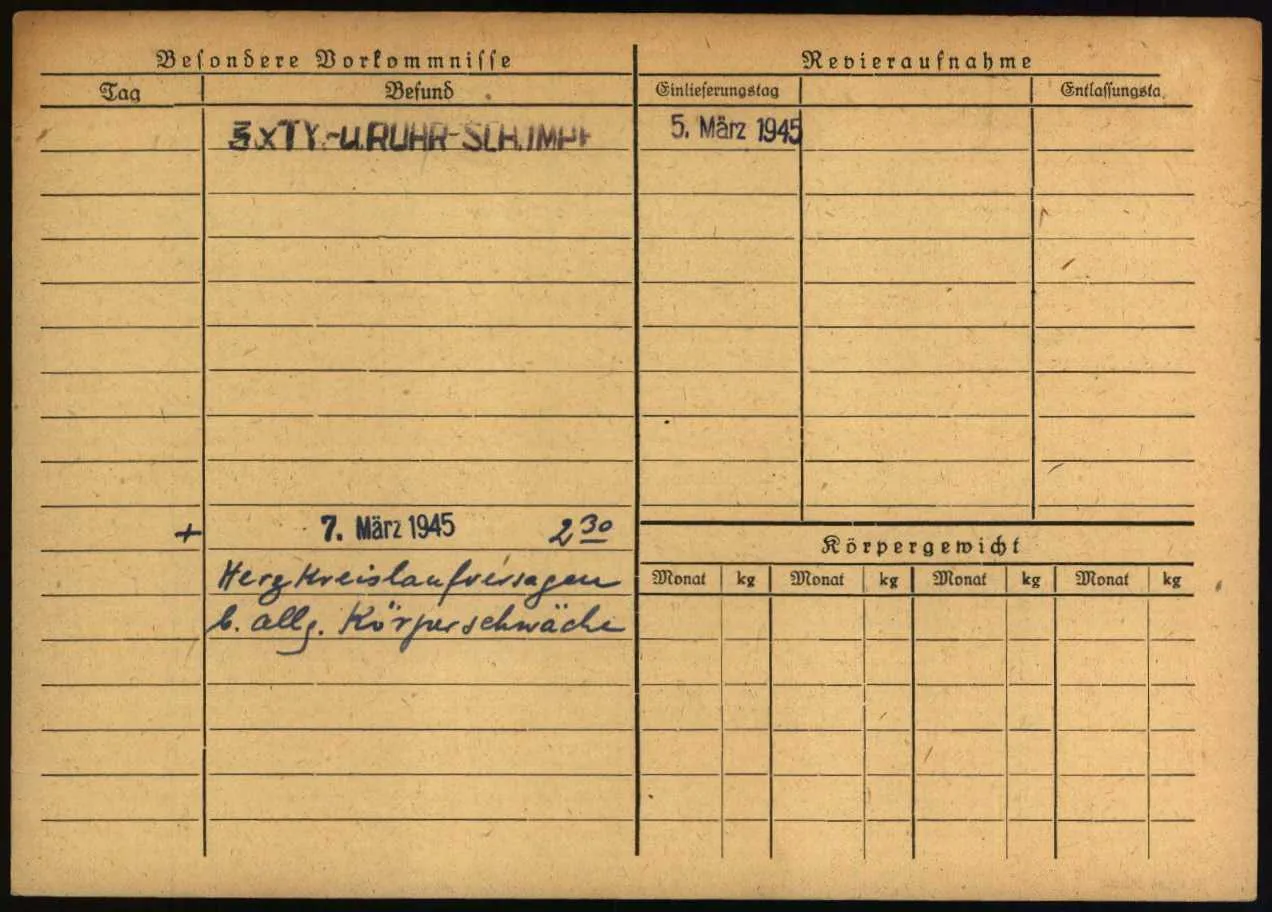 Besondere Vorkommnisse
Tag Befund
3xTY.-u.RUHR-SCH.IMPF
+ 7. März 1945 2 30
Herzkreislaufversagen
b. allg. Körperschwäche
Revieraufnahme
Einlieferungstag Entlassungsta
5. März 1945
Körpergewicht
Monat kg Monat kg Monat kg Monat kg